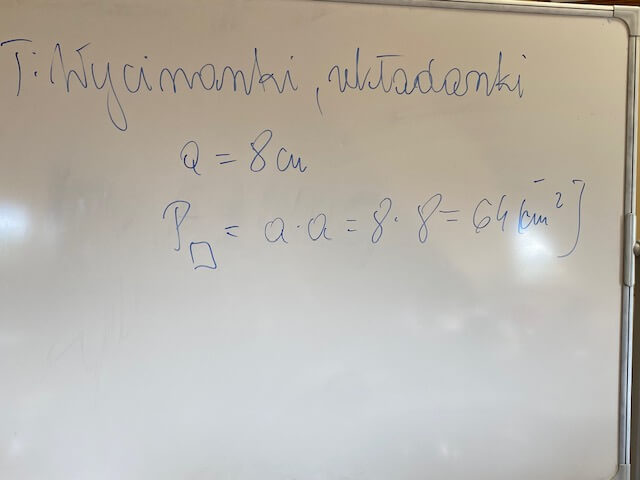 T: Wycinanki, układanki
a = 8 cm
P□ = a · a = 8 · 8 = 64 [cm²]